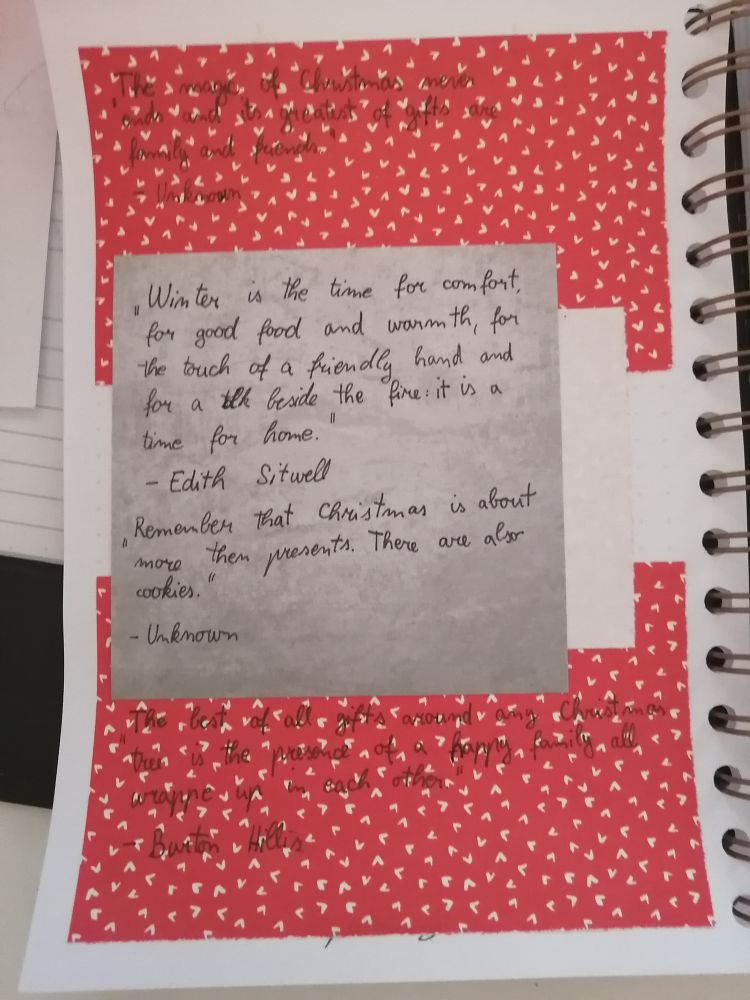 "The magic of Christmas never
ends and its greatest of gifts are
family and friends."
- Unknown
„Winter is the time for comfort,
for good food and warmth, for
the touch of a friendly hand and
for a talk beside the fire: it is a
time for home."
- Edith Sitwell
„Remember that Christmas is about
more then presents. There are also
cookies."
- Unknown
„The best of all gifts around any Christmas
tree is the presence of a happy family all
wrappe up in each other."
- Burton Hillis